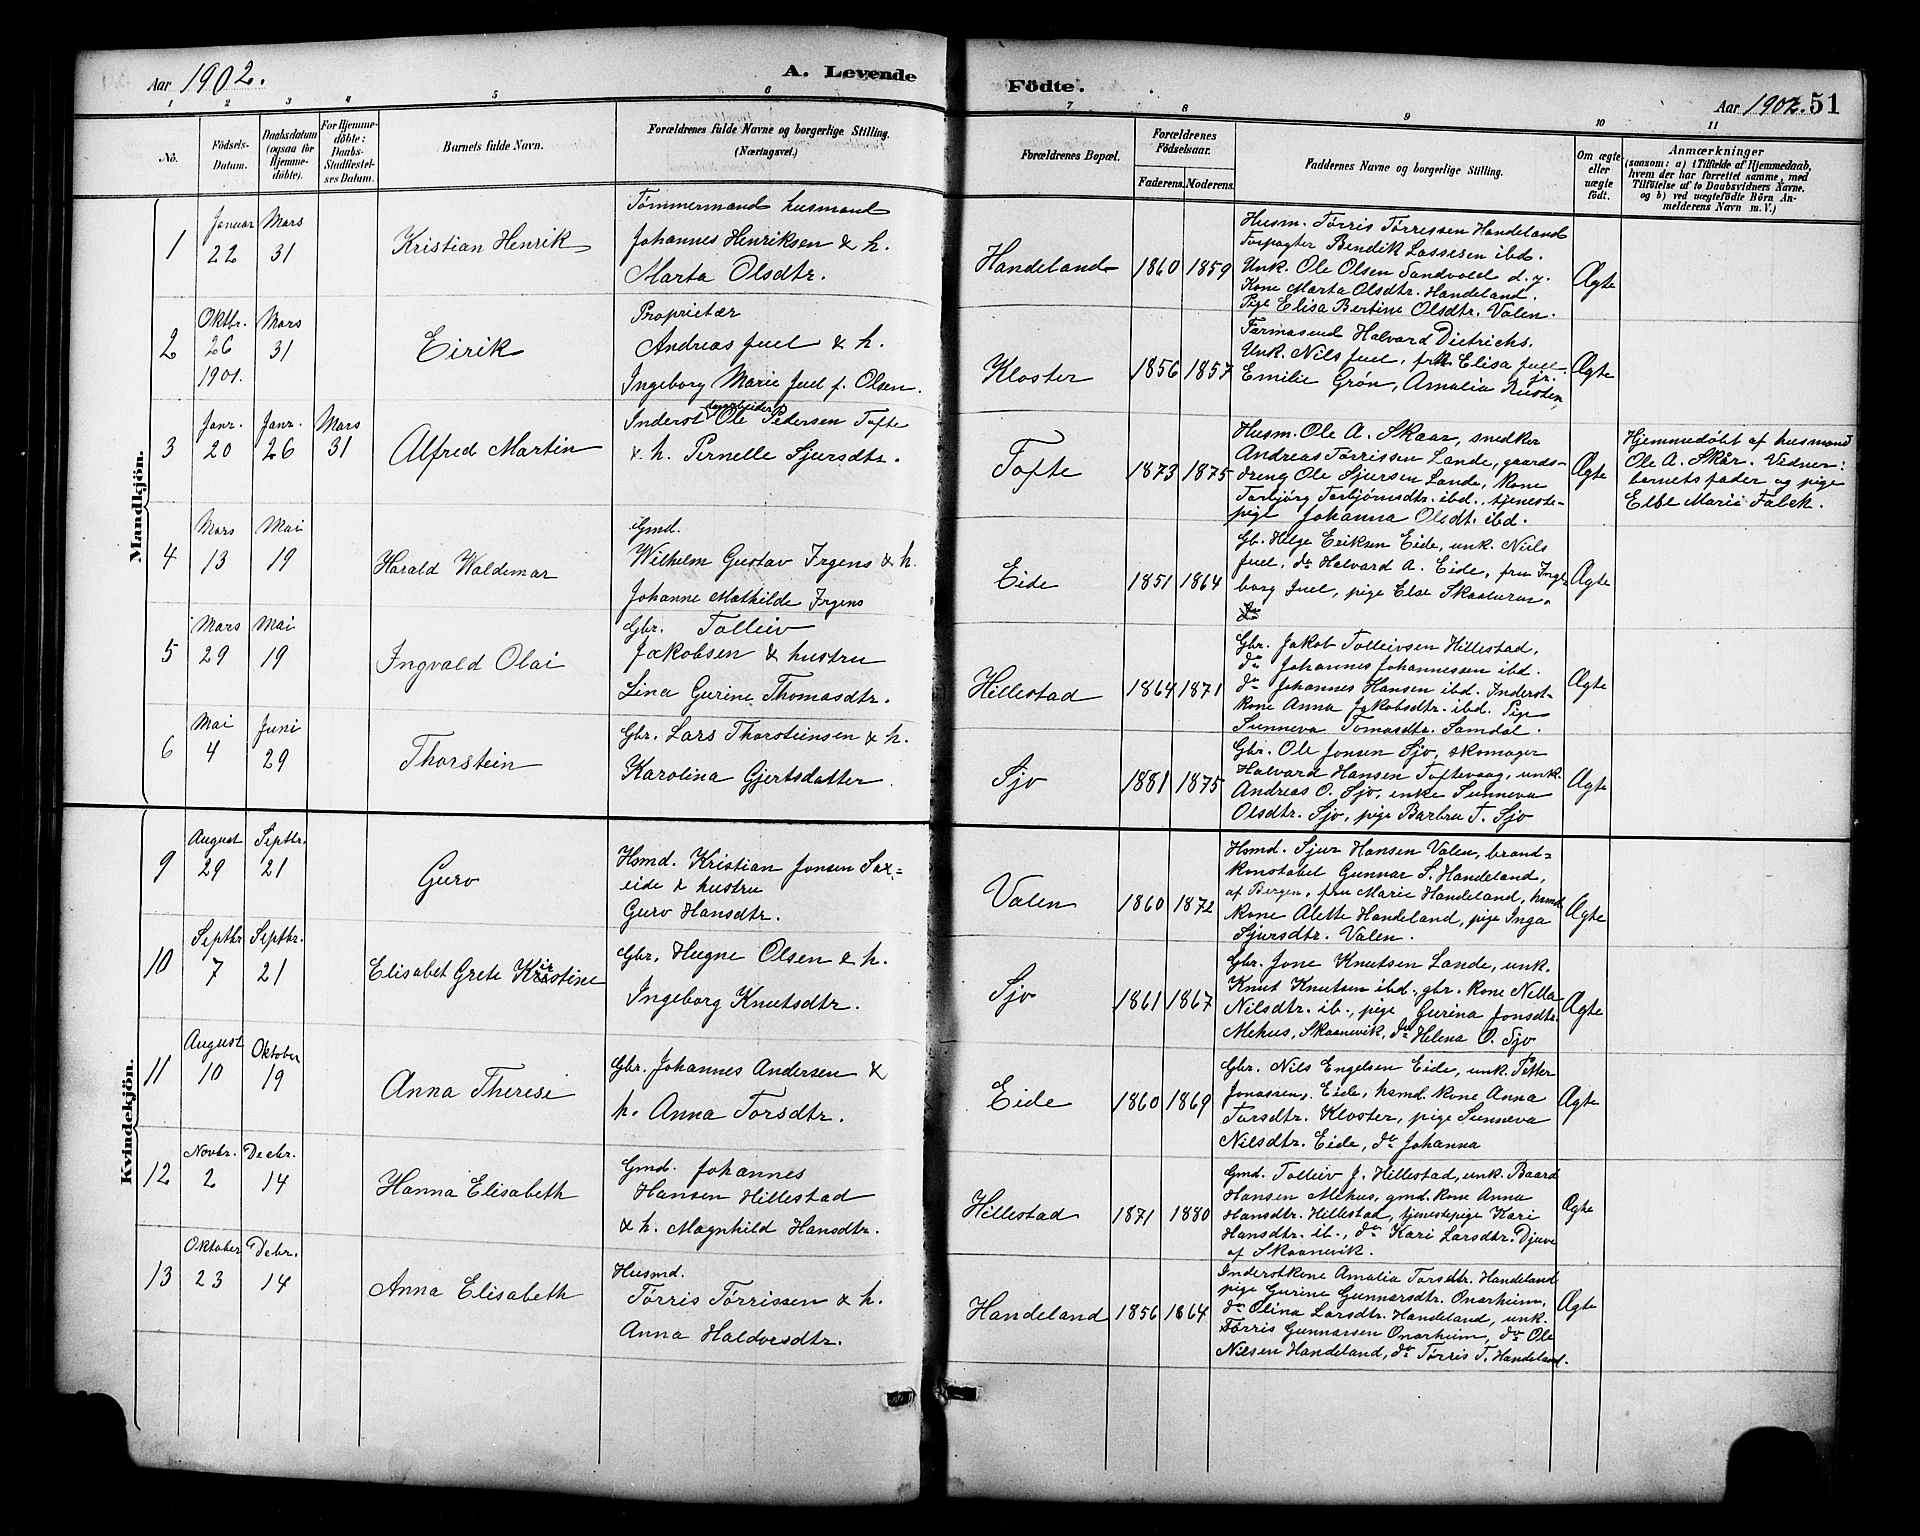 Aar 1902.
A. Levende
1 2 3 4 5 6
No.
Födsels-Datum.
Daabsdatum (ogsaa for Hjemme-döbte).
For Hjemme-döbte: Daabs-Stadfæstel-ses Datum.
Barnets fulde Navn.
Forældrenes fulde Navne og borgerlige Stilling. (Næringsvei.)
Mandkjön.
1
Januar 22
Mars 31
Kristian Henrik
Tømmermand husmand
Johannes Henriksen & h.
Marta Olsdtr.
2
Oktbr. 26 1901.
Mars 31
Eirik
Proprietær
Andreas Juel & h.
Ingeborg Marie Juel f. Olsen.
3
Janr. 20
Janr. 26
Mars 31
Alfred Martin
Inderst Ole Pedersen Tofte
& h. Pernelle Sjursdtr.
4
Mars 13
Mai 19
Harald Waldemar
Gmd.
Wilhelm Gustav Irgens & h.
Johanne Mathilde Irgens
5
Mars 29
Mai 19
Ingvald Olai
Gbr. Tolleiv
Jakobsen & hustru
Lina Gurine Thomasdtr.
6
Mai 4
Juni 29
Thorstein
Gbr. Lars Thorsteinsen & h.
Karolina Gjertsdatter.
Kvindekjön.
9
August 29
Septbr. 21
Guro
Hsmd. Kristian Jonsen Sax=
eide & hustru
Guro Hansdtr.
10
Septbr. 7
Septbr. 21
Elisabet Grete Kristine
Gbr. Hugne Olsen & h.
Ingeborg Knutsdtr.
11
August 10
Oktober 19
Anna Therese
Gbr. Johannes Andersen &
h. Anna Torsdtr.
12
Novbr. 2
Decbr. 14
Hanna Elisabeth
Gmd. Johannes
Hansen Hillestad
& h. Magnhild Hansdtr.
13
Oktober 23
Debr. 14
Anna Elisabeth
Husmd.
Tørris Tørrissen & h.
Anna Haldorsdtr.
Födte.
Aar 1902. 51
7 8 9 10 11
Forældrenes Bopæl.
Forældrenes Födselsaar.
Faderens. Moderens.
Faddernes Navne og borgerlige Stilling.
Om ægte eller uægte födt.
Anmærkninger
(saasom: a) i Tilfælde af Hjemmedaab,
hvem der har forrettet samme, med
Tilföielse af to Daabsvidners Navne.
og b) ved uægtefödte Börn An-
melderens Navn m. V.)
Handeland
1860 1859
Husm. Tørris Tørrissen Handeland
Forpagter Bendik Lassesen ibd.
Unk. Ole Olsen Sandvold d.y.
Kone Marta Olsdtr. Handeland.
Pige Elisa Bertine Olsdtr. Valen.
Ægte
Kloster
1856 1857
Farmasend Halvard Dietrichs.
Unk. Nils Juel, frk. Elisa Juel
Emilie Grøn, Amalia Rusten
Ægte
Tofte
1873 1875
Husm. Ole A. Skaar, snedker
Andreas Tørrissen Lande, gaards-
dreng Ole Sjursen Lande, kone
Torbjørg Torbjørnsdtr. ibd., tjeneste-
pige Johanna Olsdt. ibd.
Ægte
Hjemmedøbt af husmand
Ole A. Skår. Vidner:
barnets fader og pige
Else Marie Falck.
Eide
1851 1864
Gb. Helge Eriksen Eide, unk. Niels
Juel, do Halvard A. Eide, fru Inge-
borg Juel, pige Else Skaaturun.
Ægte
Hillestad
1864 1871
Gbr. Jakob Tolleivsen Hillestad,
do Johannes Johannessen ibd.
do Johannes Hansen ibd. Inderst-
kone Anna Jakobsdtr. ibd. Pige
Sunneva Tomasdtr. Samdal.
Ægte
Sjo
1881 1875
Gbr. Ole Jonsen Sjo, skomager
Halvard Hansen Toftevaag, unk.
Andreas O. Sjo, enke Sunneva
Olsdtr. Sjo, pige Barbru T. Sjo
Ægte
Valen
1860 1872
Hsmd. Sjur Hansen Valen, brand=
konstabel Gunnar S. Handeland,
af Bergen, fru Marie Handeland, hsmd.
kone Alette Handeland, pige Inga
Sjursdtr. Valen.
Ægte
Sjo
1861 1867
Gbr. Jone Knutsen Lande, unk.
Knut Knutsen ibd., gbr. kone Nilla
Nilsdtr. ib., pige Gurina Jonsdtr.
Mehus, Skaanevik, do Helena O. Sjo
Ægte
Eide
1860 1869
Gbr. Nils Engelsen Eide, unk. Petter
Jonassen, Eide, hsmd. kone Anna
Torsdtr. Kloster, pige Sunneva
Nilsdtr. Eide, do Johanna
Ægte
Hillestad
1871 1880
Gmd. Tolleiv J. Hillestad, unk. Baard
Hansen Mehus, gmd. kone Anna
Hansdtr. Hillestad, tjenestepige Kari
Hansdtr. ib., do Kari Larsdtr. Djuve
af Skaanevik.
Ægte
Handeland
1856 1864
Inderstkone Amalia Torsdtr. Handeland
pige Gurine Gunnarsdtr. Onarheim,
do Olina Larsdtr. Handeland, unk.
Tørris Gunnarsen Onarheim, do Ole
Nilsen Handeland, do Tørris T. Handeland.
Ægte